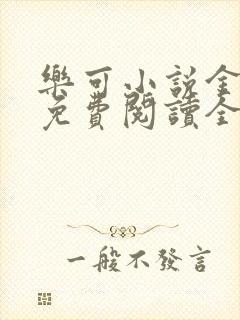 樂可小說全
免費閱讀全
一般不發言